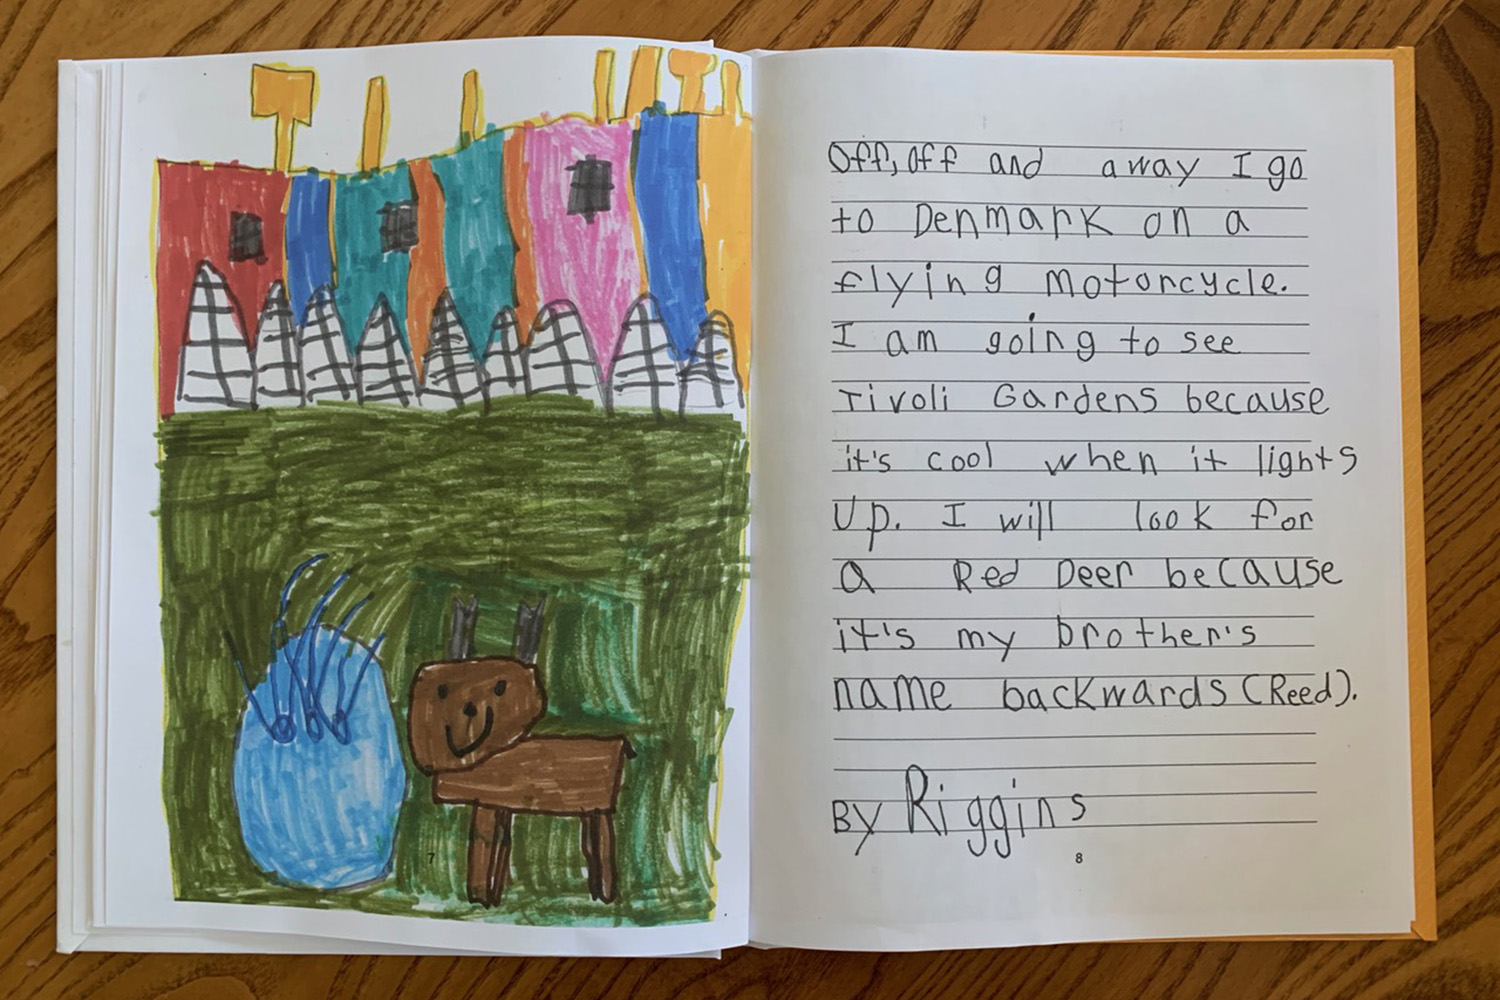 Off, off and away I go
to Denmark on a
flying motorcycle.
I am going to see
Tivoli Gardens because
it's cool when it lights
up. I will look for
a Red Deer because
it's my brother's
name backwards (Reed).
By Riggins
7
8